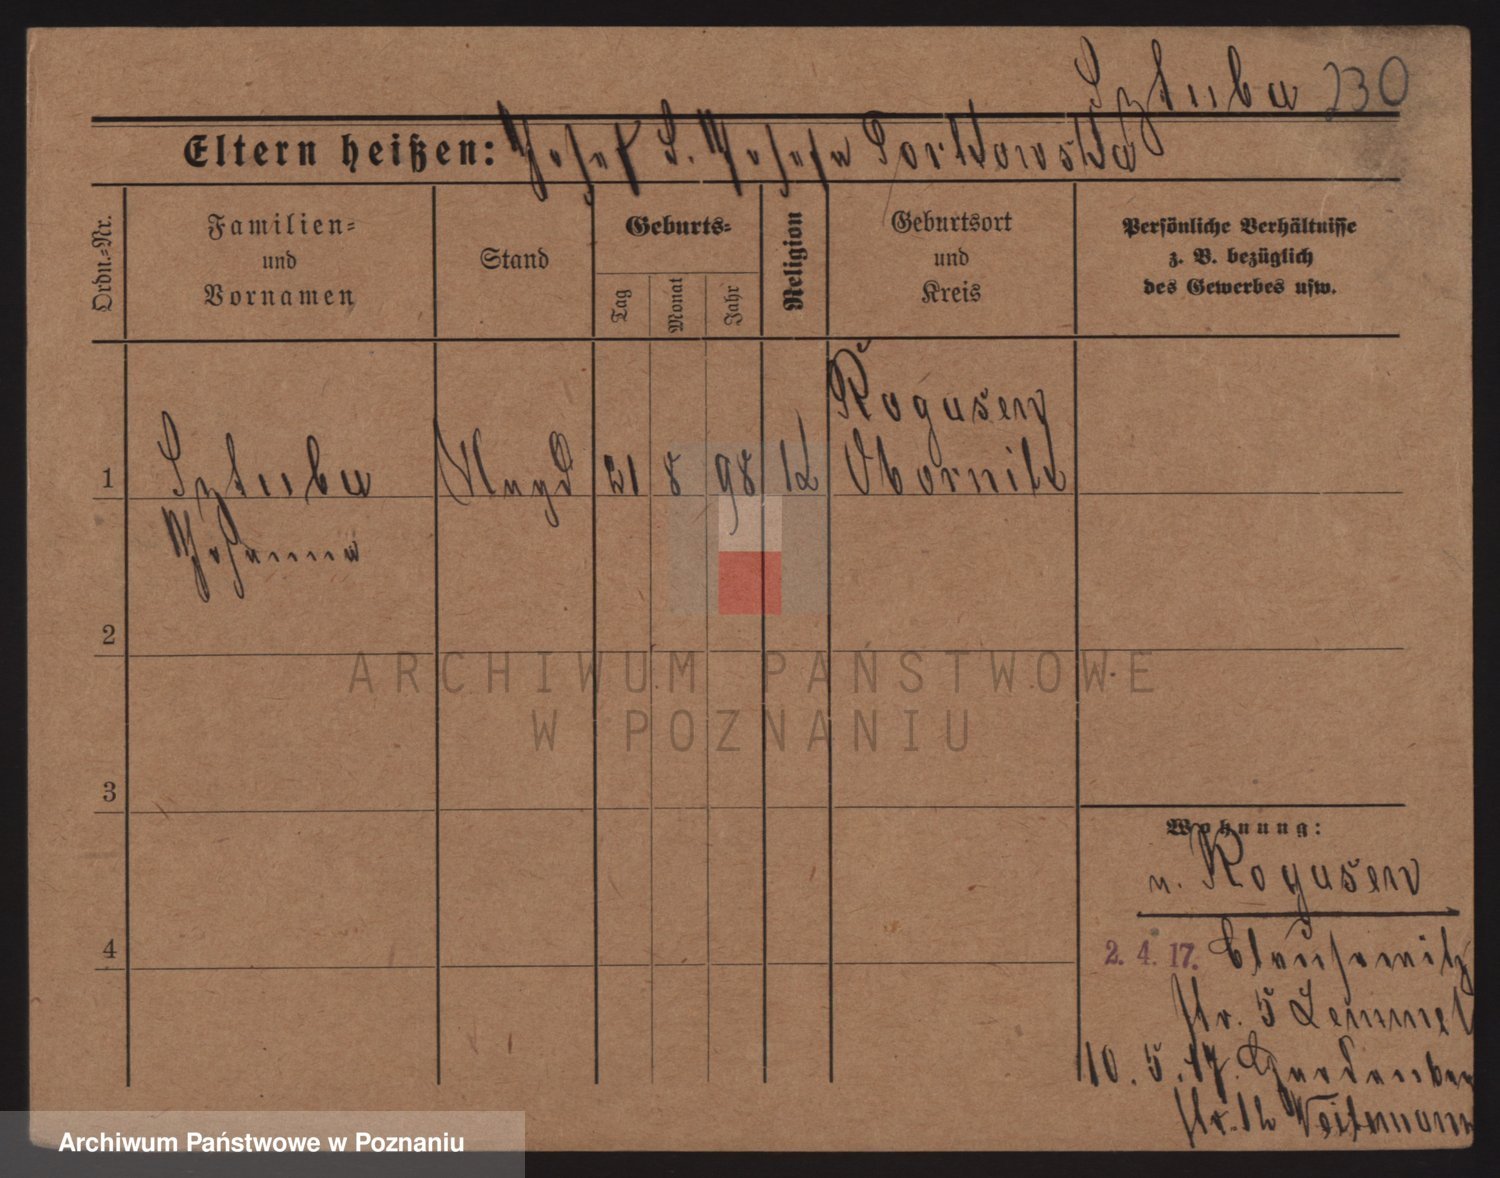 Sztuba 230
Eltern heißen: Josef S. Josefa
Ordn.-Nr.
Familien-
und
Vornamen
Stand
Geburts-
Tag
Monat
Jahr
Religion
Geburtsort
und
Kreis
Persönliche Verhältnisse
z. B. bezüglich
des Gewerbes usw.
Rogusen
1 Sztuba Magd 21 8 98 k Obornik
Johanna
2
3
4
Wohnung:
n. Rogusen
2. 4. 17.
str. 5
10. 5. 17.
str. 12
ARCHIWUM PAŃSTWOWE
W POZNANIU
Archiwum Państwowe w Poznaniu